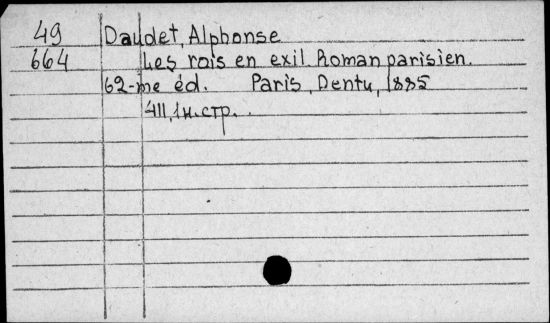 49 Daudet, Alphonse
664 Les rois en exil. Roman parisien.
62-me éd. Paris, Dentu, 1885
411, 1 н. стр.